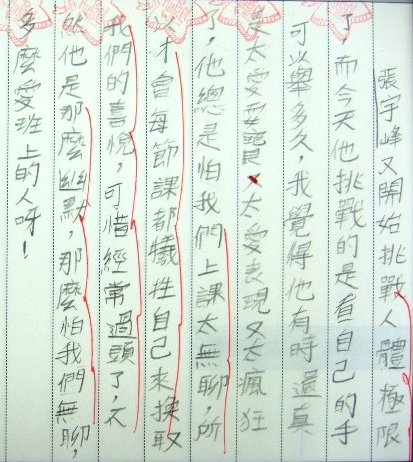 張宇峰又開始挑戰人體極限
了，而今天他挑戰的是看自己的手
可以舉多久，我覺得他有時還真
太愛耍寶又太愛表現又太瘋狂
了，他總是怕我們上課太無聊，所
以才會每節課都犧牲自己來換取
我們的喜悅，可惜經常過頭了，不
他是那麼幽默，那麼怕我們無聊，
多麼愛班上的人呀！